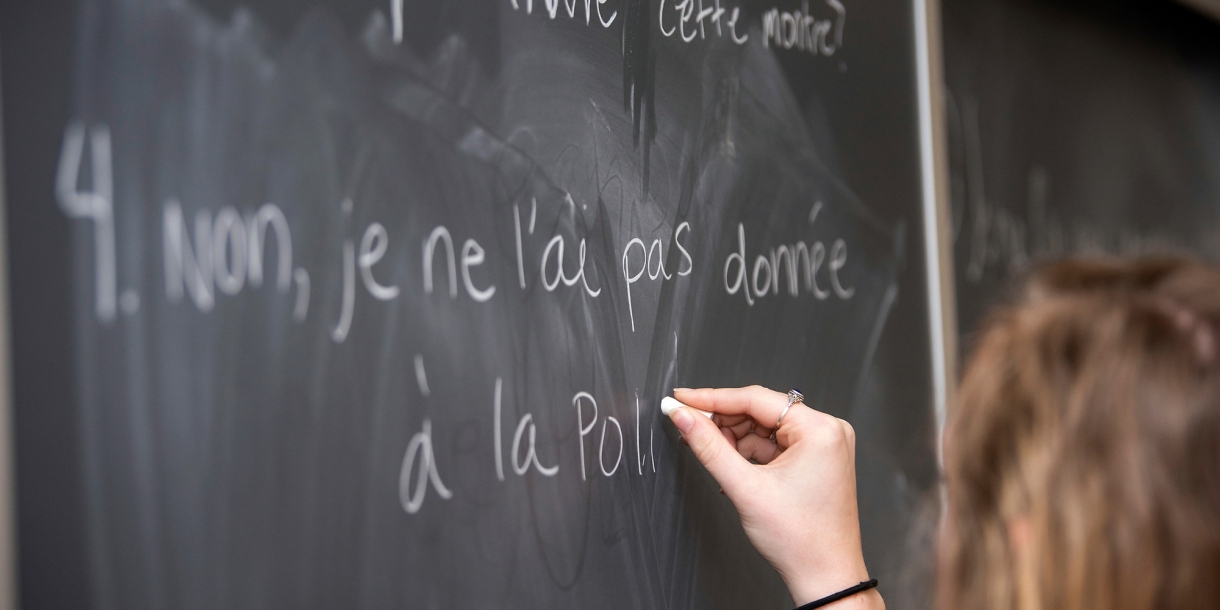 cette montre?
4. Non, je ne l'ai pas donnée
à la Poli